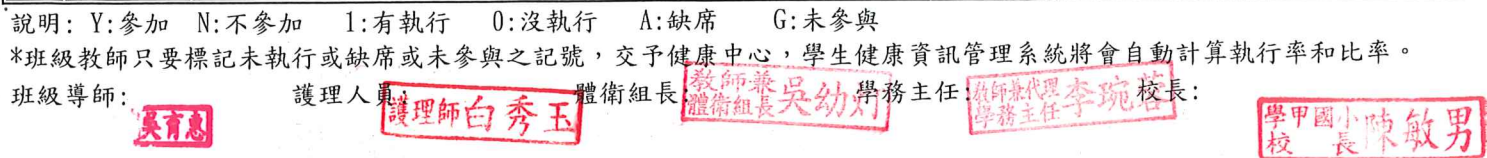 說明: Y:參加 N:不參加 1:有執行 0:沒執行 A:缺席 G:未參與
*班級教師只要標記未執行或缺席或未參與之記號，交予健康中心，學生健康資訊管理系統將會自動計算執行率和比率。
班級導師: 護理人員: 體衛組長: 學務主任: 校長:
吳育惠
護理師白秀玉
教師兼
體衛組長吳幼
教師兼代理
學務主任李琬
學甲國小
校長陳敏男